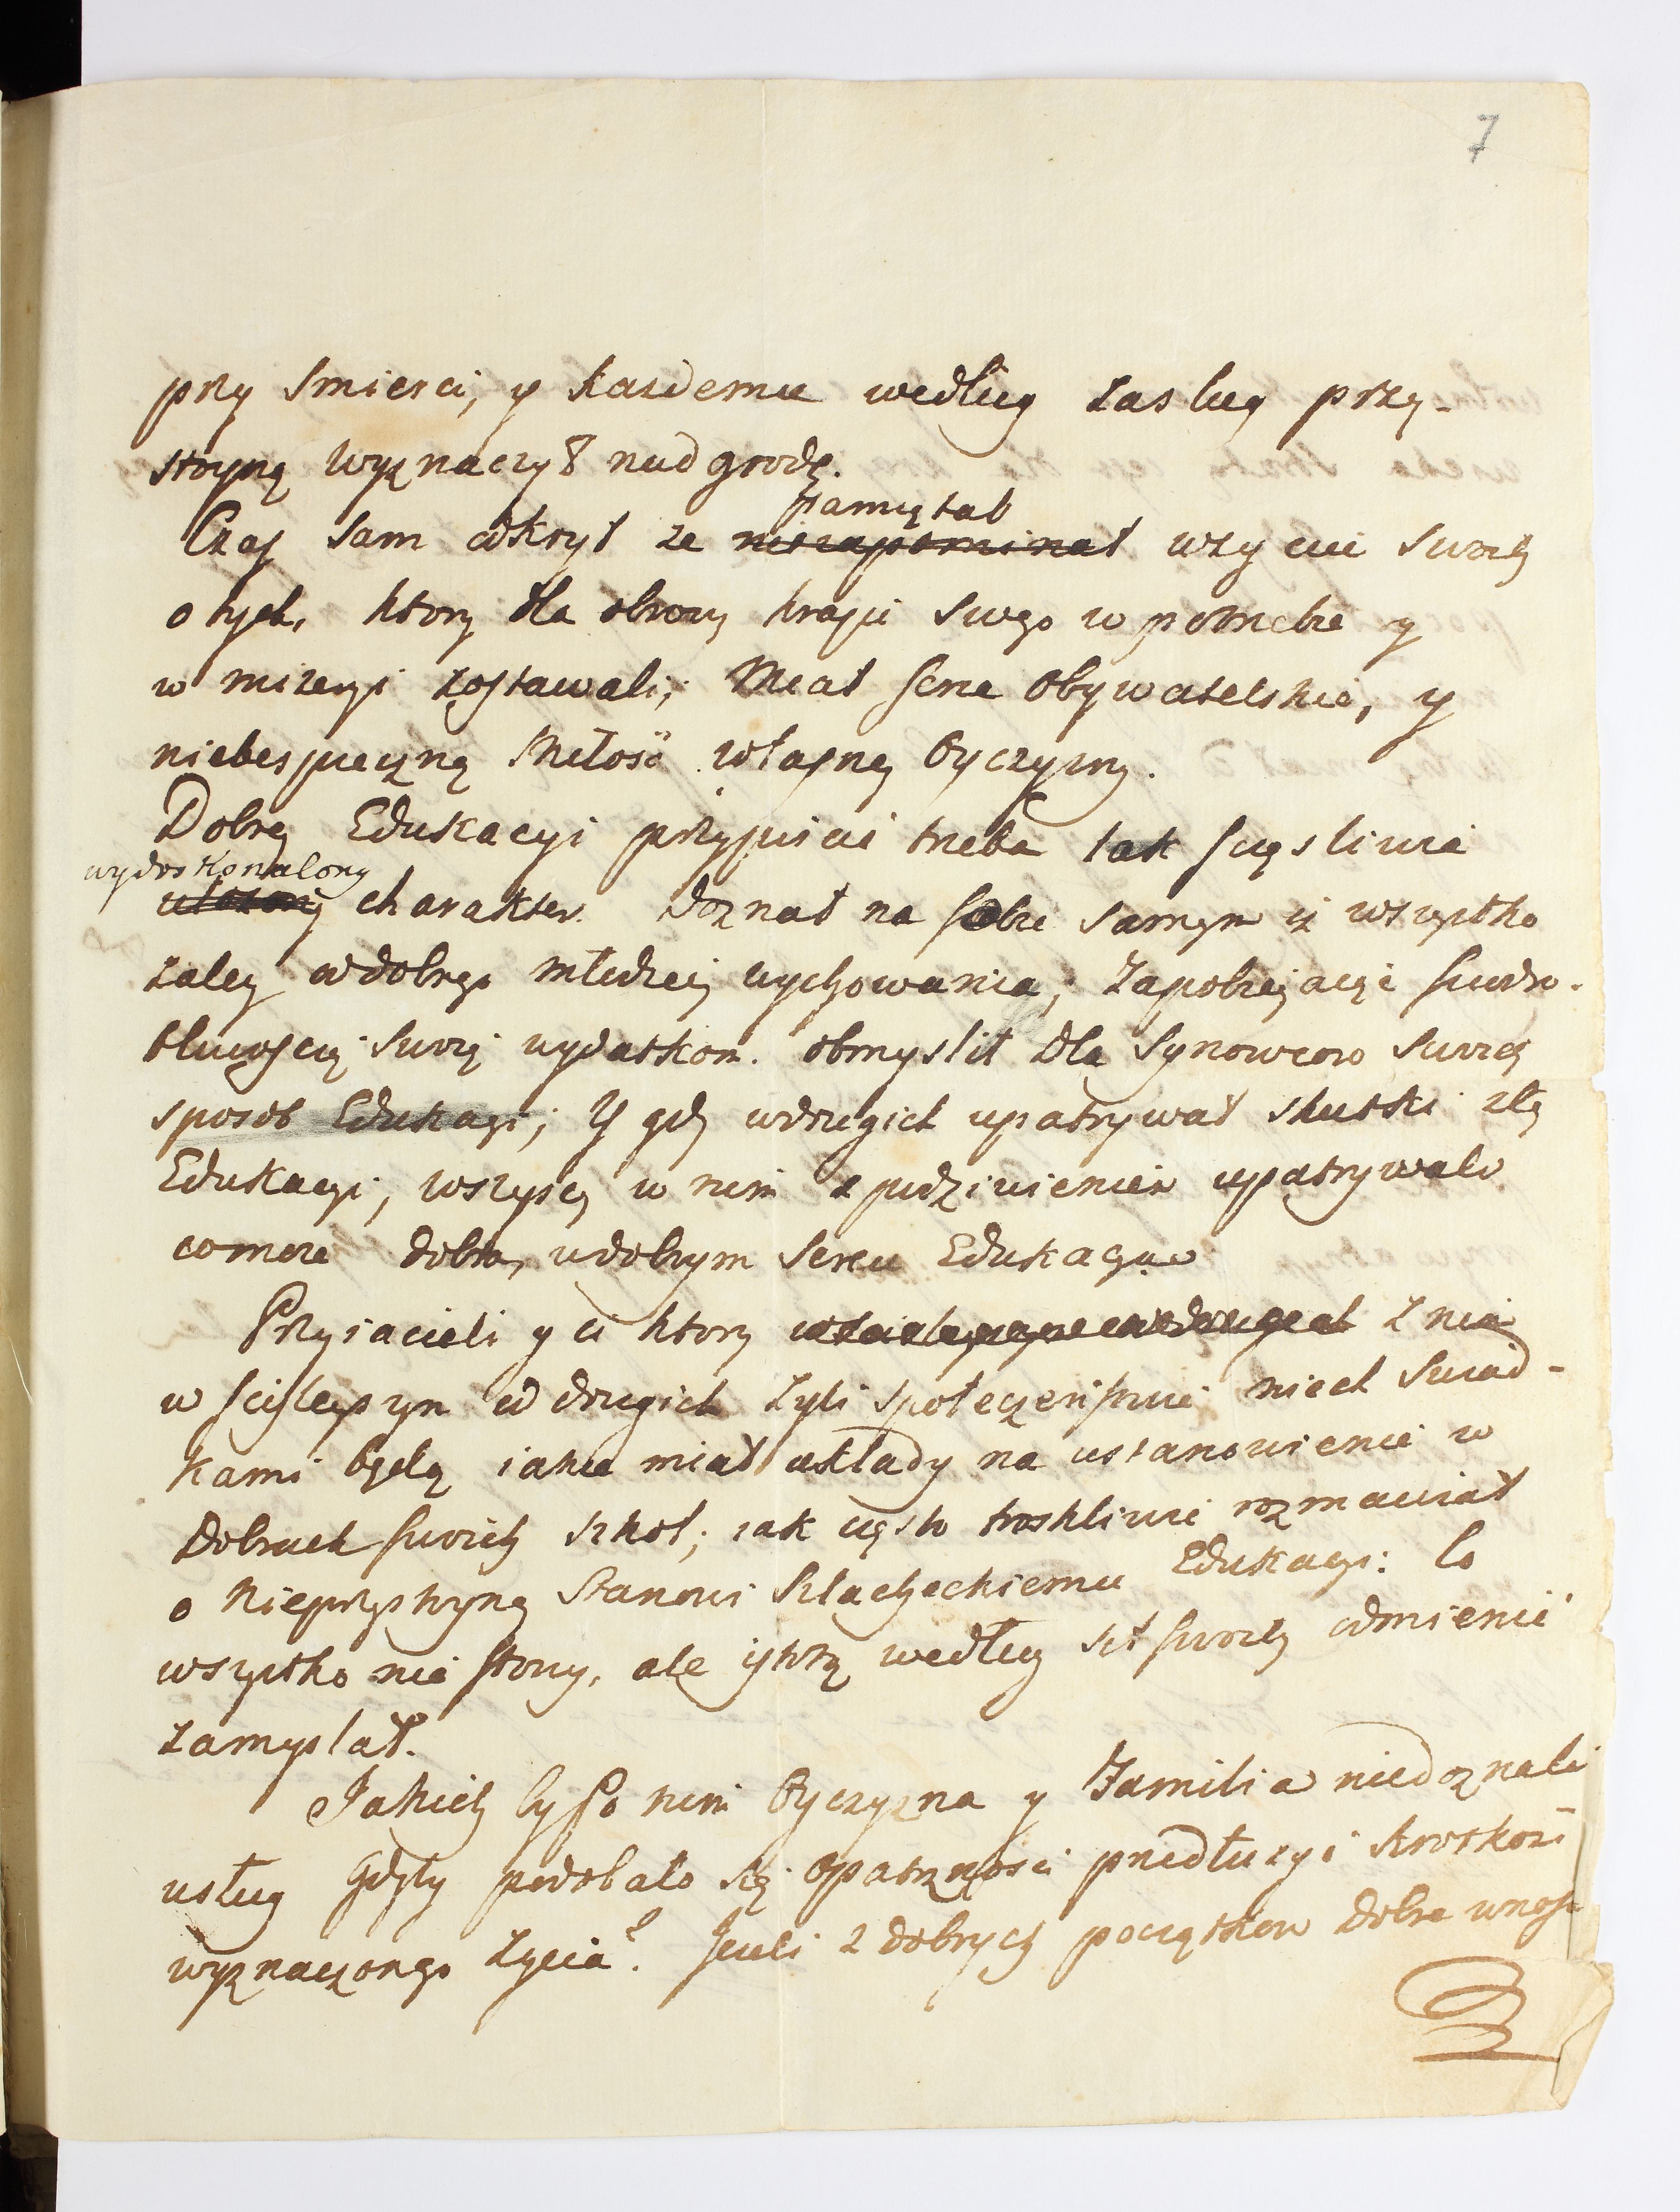 7
przy smierci, y każdemu według zasług przy-
stoyną wyznaczył nadgrodę.
pamiętał
Czas sam odkrył ze niezapominał w życiu swoiey
o tych, ktorzy dla obrony kraju swego w potrzebie y
w mizeryi zostawali; Miał serce Obywatelskie, y
niebespieczną Miłość własney Oyczyzny.
Dobrey Edukacyi przypisać trzeba tak szczęsliwie
wydoskonalony
ułożony charakter. Doznał na sobie samym iż wszystko
zależy od dobrego młodzieży wychowania; Zapobiegaiąc
swoią wydatkom. obmyslił dla Synowcow swoich
sposob Edukacyi; Y gdy w drugich upatrywał skutki złey
Edukacyi, wszyscy w nim z podziwieniem upatrywali
co może dobra, w dobrym sercu Edukacya
Przyiaciele y ci ktorzy z nim
w scisleyszym od drugich żyli społeczeństwie niech swiad-
kami będą iakie miał układy na ustanowienie w
Dobrach swoich szkoł; iak często troskliwie rozmawiał
o Nieprzystoyną Stanowi Szlacheckiemu Edukacyi: Co
wszystko nie słowy, ale według sił swoich odmienić
zamyslał.
Jakich by Po nim Oyczyzna y Familia niedoznali
usług Gdyby podobało się Opatrznosci przedłużyć krotkość
wyznaczonego życia? Jeżeli z dobrych początkow dobre